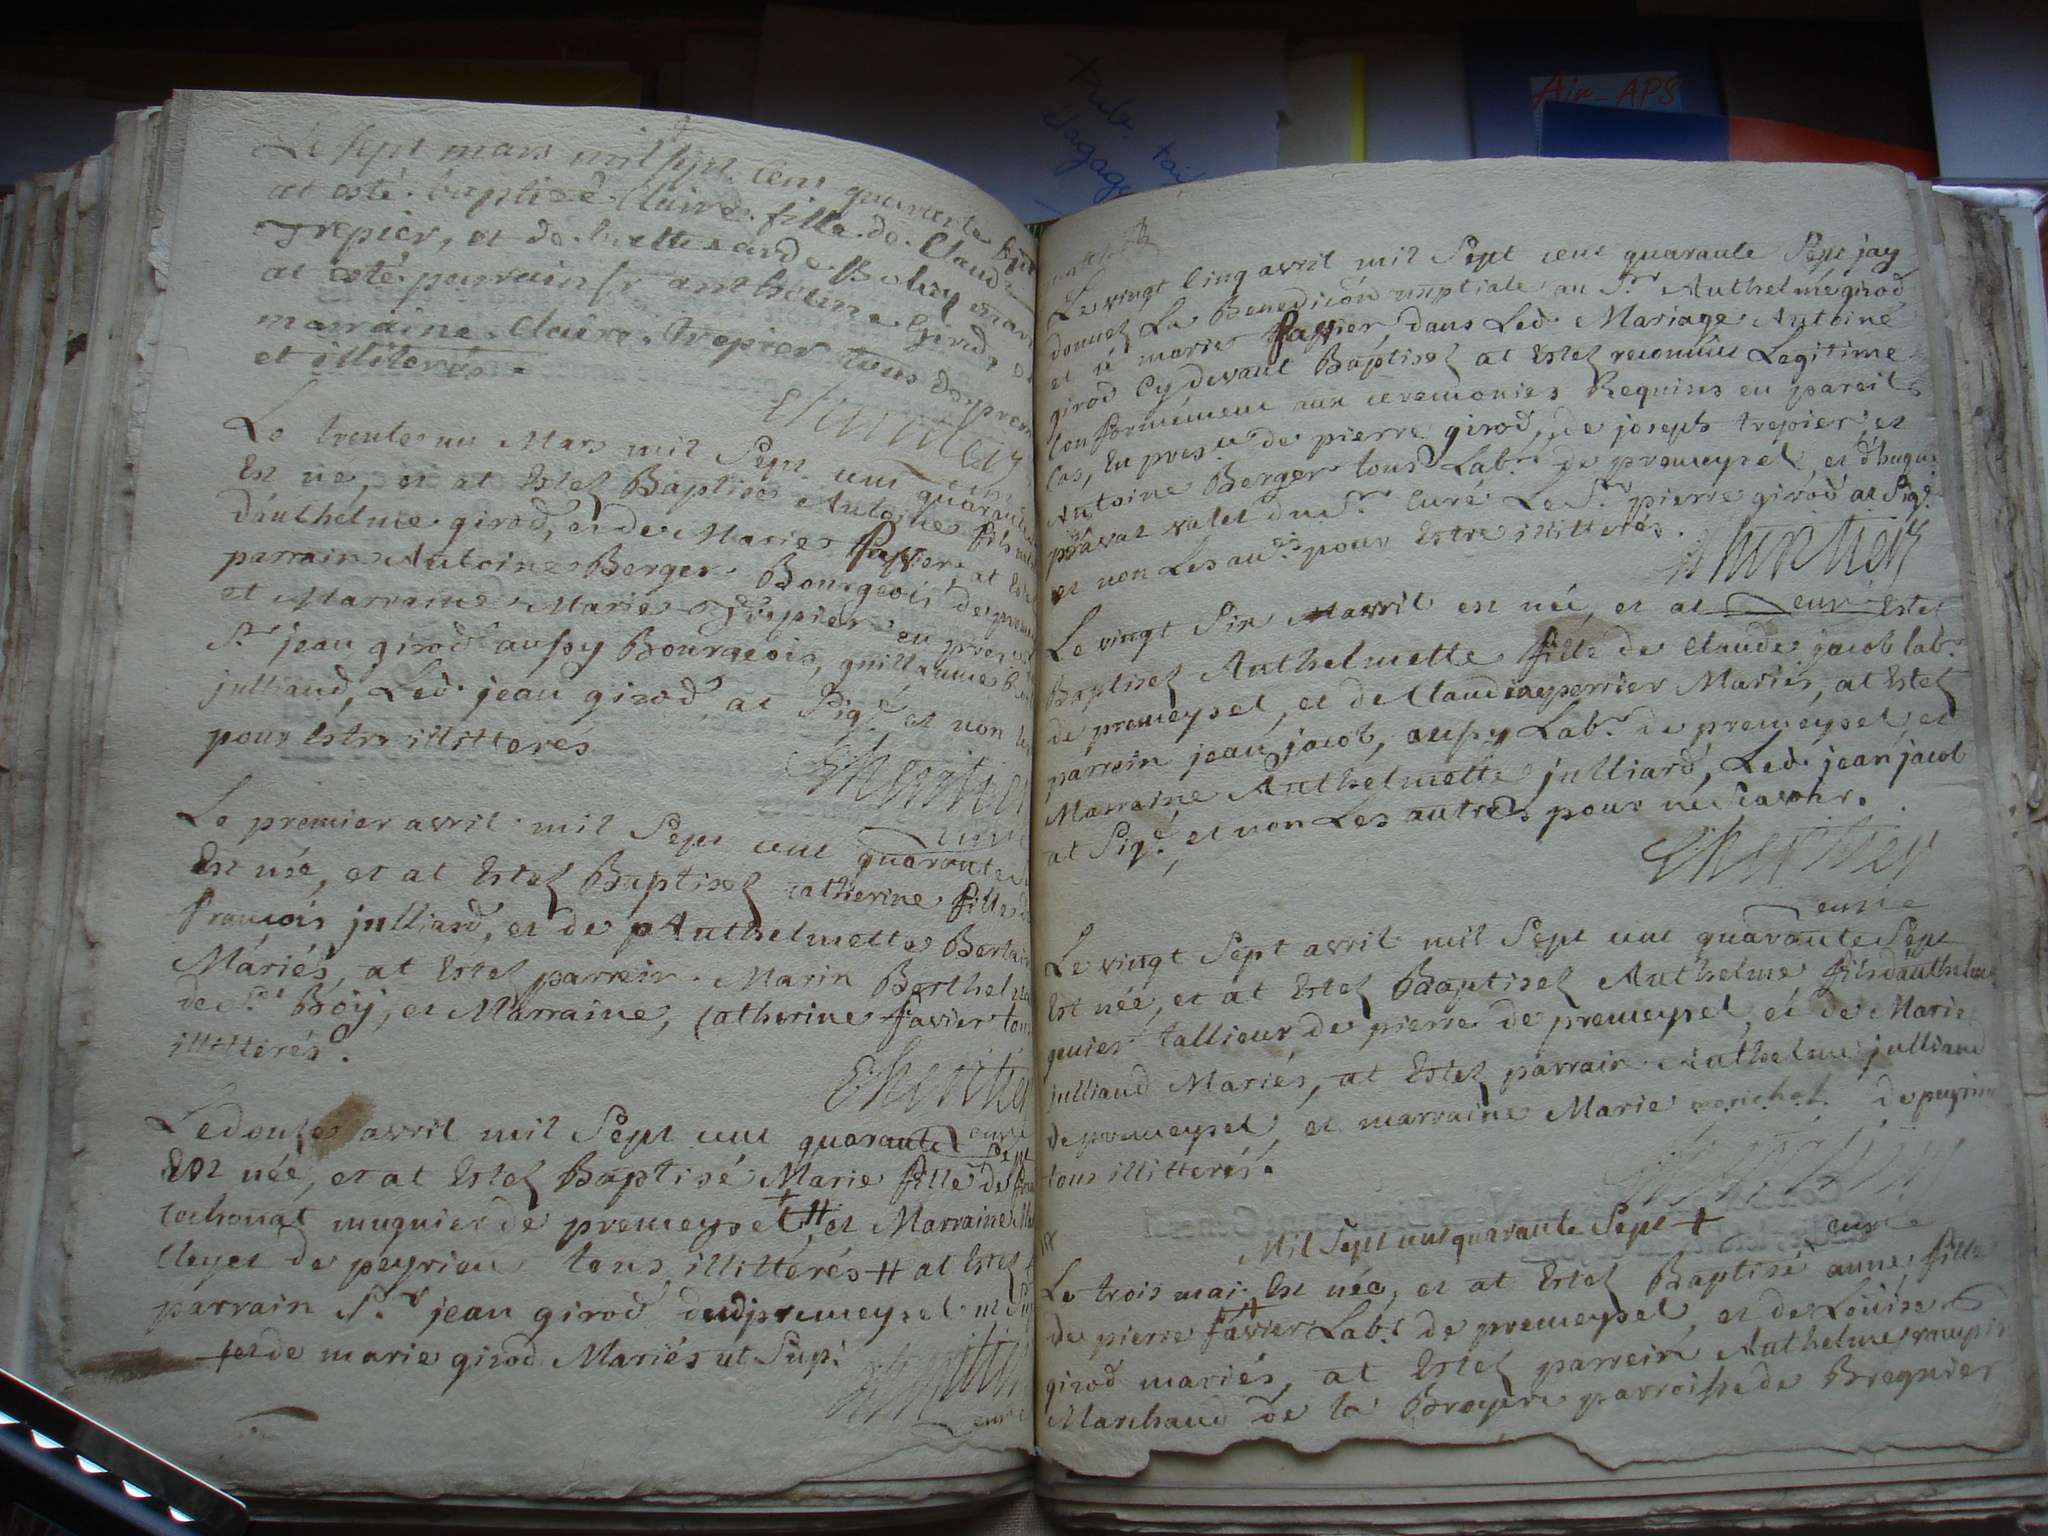 Pub. tail
élagage
Air-APS
Le sept mars mil sept cent quarante
at esté baptisée Claire fille de Claude
Trepier, et de
at esté parrain sr anthelme Girod, et
marraine Claire Trepier tous de prem
et illiterés.
Le trente un Mars mil Sept cent quarante
Est né, et at Estez Baptisez Antoine fils
d'anthelme girod, et de Marie favier, at Esté
parrain Antoine Berger Bourgeois de preme
et Marraine Marie Trepier en pres
Sr jean girod aussy Bourgeois, guillaume
julliand, Led. jean girod at Sigé et non les
pour Estre illitterés
curé
Le premier avril mil Sept cent quarante
Est née, et at Estez Baptisez catherine fille de
françois julliard, et de Anthelmette
Mariés, at Estez parrein Marin Berthel
de St Boÿ, et Marraine, Catherine favier tous
illitterés.
curé
Le douse avril mil Sept cent quarante Sept
Est née, et at Estez Baptisé Marie fille de
cochonat mugnier de premeyzel + # et Marraine
Cleyet de peyrieu tous illittérés # at Estez
parrain Sr jean girod dud premeyzel
+ et de marie girod Mariés ut Sup.
curé
Le vingt Cinq avril mil Sept cent quarante Sept jay
donnez La Benediction nuptiale au Sr Anthelme girod
et a marie favier, dans Led. Mariage Antoine
girod Cy devant Baptisez at Estez reconnu Legitime
Conformement aux ceremonies Requises en pareil
Cas, En presce de pierre girod, de joseph trepier, et
Antoine Berger tous Labr de premeysel, et d'hugue
pravaz valet du Sr Curé Le Sr pierre girod at Sigé
et non Les aues pour Estre illitterés.
curé
Le vingt Six avril est née, et at Estez
Baptisez Anthelmette fille de Claude jacob labr
de premeysel, et de Claudine perrier Mariés, at Estez
parrein jean jacob, aussy Labr de premeysel et
Marraine Anthelmette julliard, Led. jean jacob
at Sigé, et non Les autres pour ne Scavoir.
curé
Le vingt Sept avril mil Sept cent quarante Sept
Est née, et at Estez Baptisez Anthelme fils d'anthelme
genier tallieur de pierre de premeysel, et de Marie
julliand Mariés, at Estez parrain Anthelme julliand
de premeysel, et marraine Marie michel de peyrieu
tous illitterés.
curé
Mil Sept cent quarante Sept +
Le trois mai Est née, et at Estez Baptisé anne fille
de pierre favier Labr de premeysel, et de Loüise
girod mariés, at Estez parrein Anthelme
Marchand de la Bruyere parroisse de Bregnier